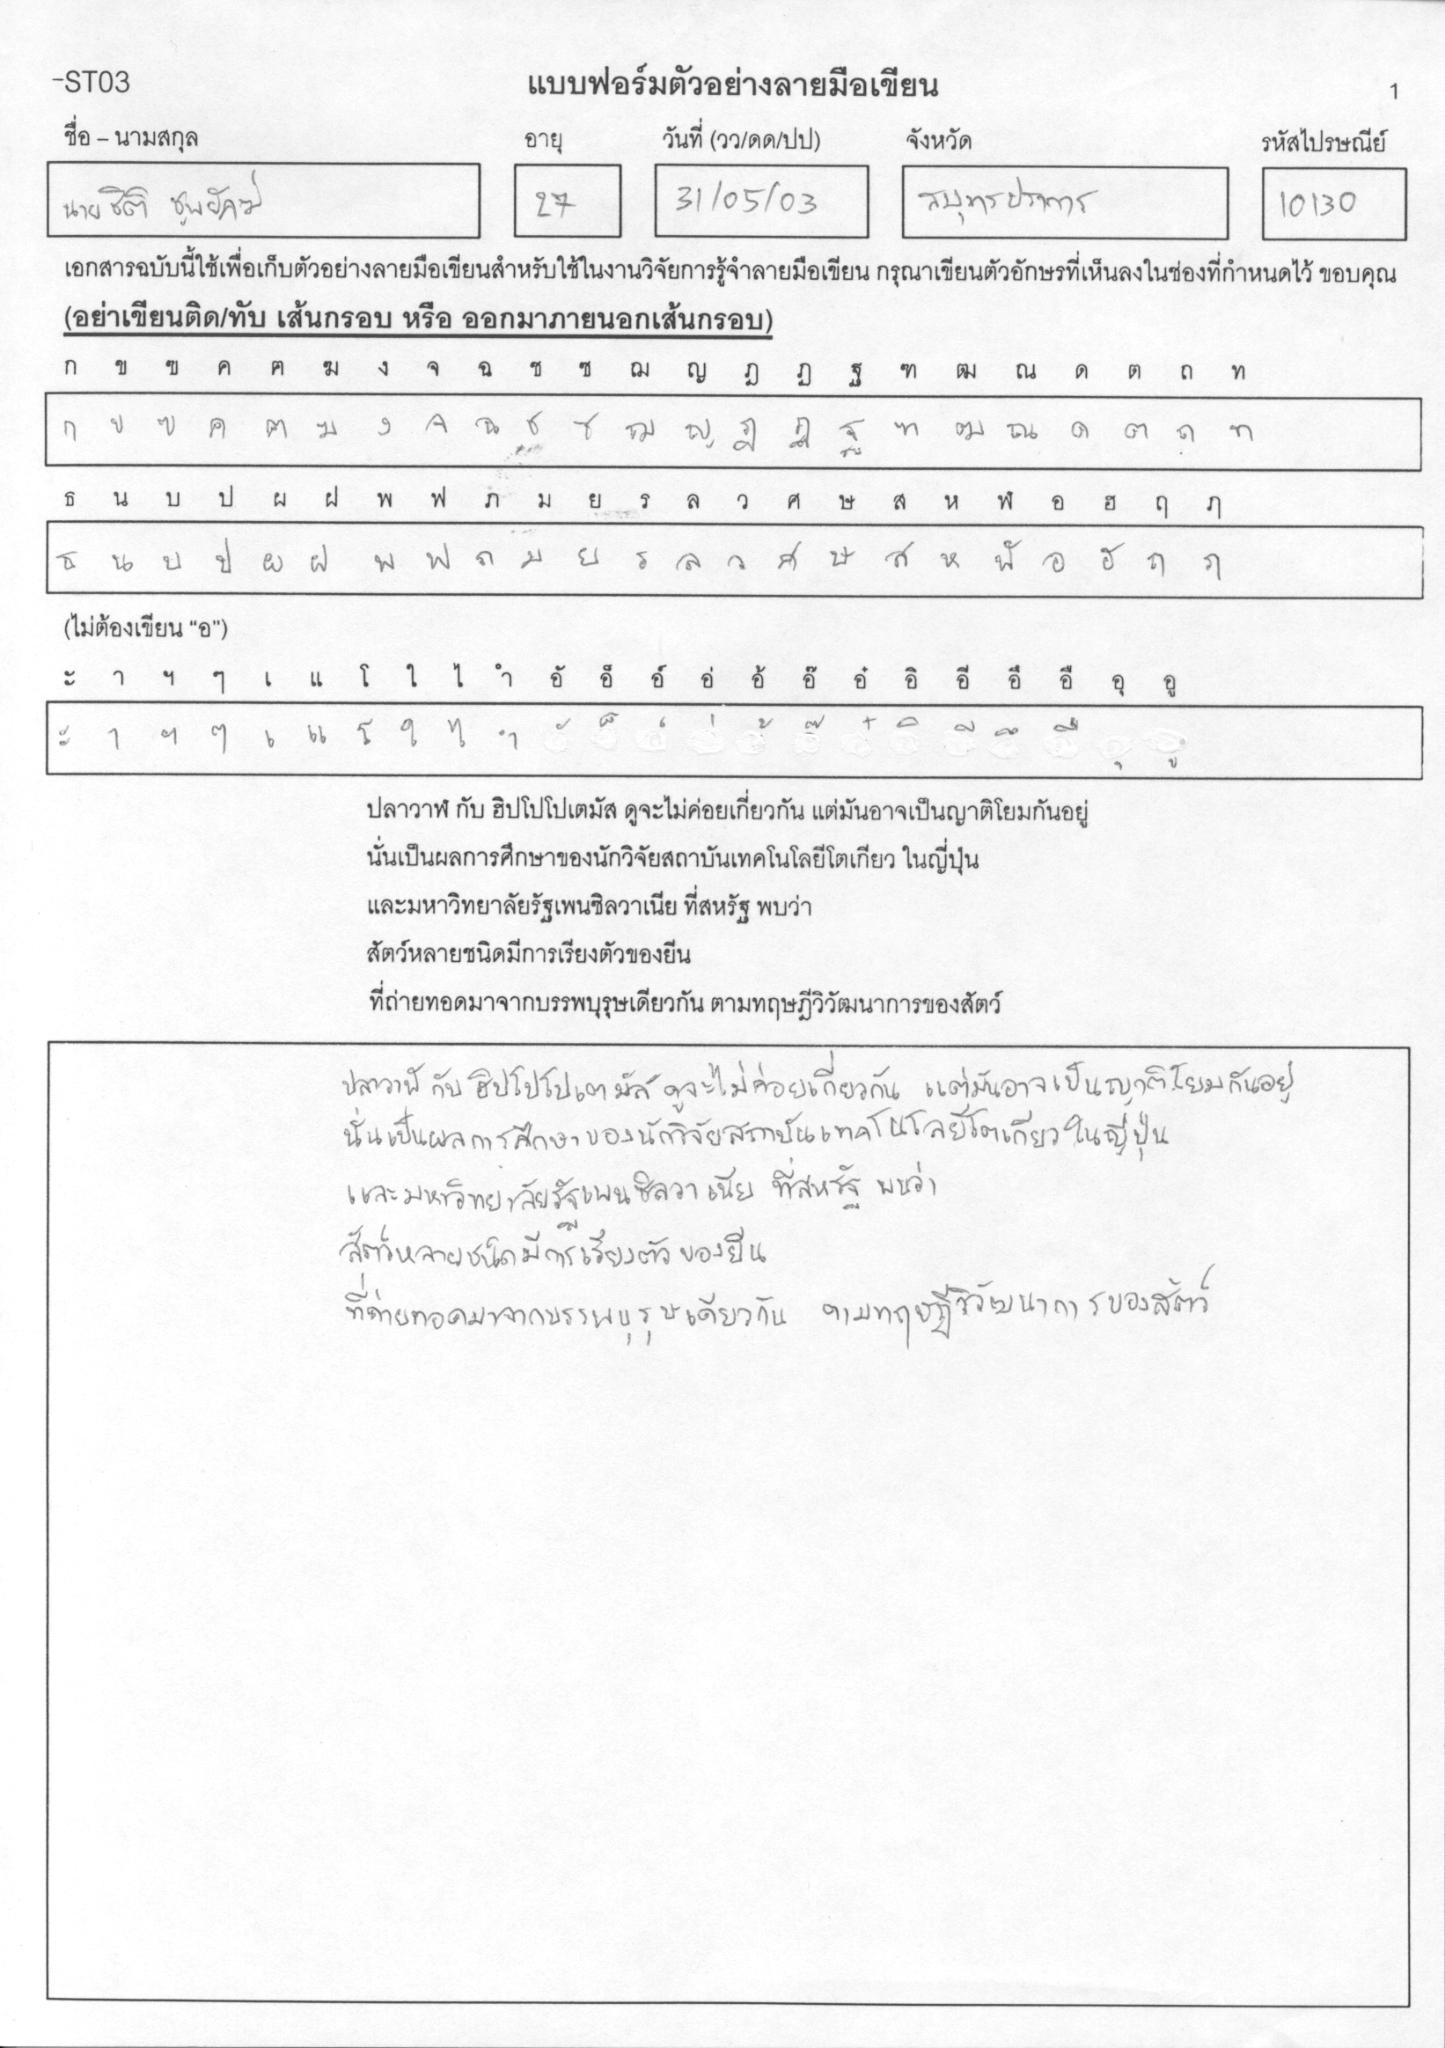 -ST03
แบบฟอร์มตัวอย่างลายมือเขียน
1
ชื่อ – นามสกุล อายุ วันที่ (วว/ดด/ปป) จังหวัด รหัสไปรษณีย์
นาย ธิติ 27 31/05/03 สมุทรปราการ 10130
เอกสารฉบับนี้ใช้เพื่อเก็บตัวอย่างลายมือเขียนสำหรับใช้ในงานวิจัยการรู้จำลายมือเขียน กรุณาเขียนตัวอักษรที่เห็นลงในช่องที่กำหนดไว้ ขอบคุณ
(อย่าเขียนติด/ทับ เส้นกรอบ หรือ ออกมาภายนอกเส้นกรอบ)
ก ข ฃ ค ฅ ฆ ง จ ฉ ช ซ ฌ ญ ฎ ฏ ฐ ฑ ฒ ณ ด ต ถ ท
ก ข ฃ ค ฅ ฆ ง จ ฉ ช ซ ฌ ญ ฎ ฏ ฐ ฑ ฒ ณ ด ต ถ ท
ธ น บ ป ผ ฝ พ ฟ ภ ม ย ร ล ว ศ ษ ส ห ฬ อ ฮ ฤ ฦ
ธ น บ ป ผ ฝ พ ฟ ภ ม ย ร ล ว ศ ษ ส ห ฬ อ ฮ ฤ ฦ
(ไม่ต้องเขียน “อ”)
ะ า ฯ ๆ เ แ โ ใ ไ ำ อั อ็ อ์ อ่ อ้ อ๊ อ๋ อิ อี อึ อื อุ อู
ะ า ฯ ๆ เ แ โ ใ ไ ำ ั ็ ์ ่ ้ ๊ ๋ ิ ี ึ ื ุ ู
ปลาวาฬ กับ ฮิปโปโปเตมัส ดูจะไม่ค่อยเกี่ยวกัน แต่มันอาจเป็นญาติโยมกันอยู่
นั่นเป็นผลการศึกษาของนักวิจัยสถาบันเทคโนโลยีโตเกียว ในญี่ปุ่น
และมหาวิทยาลัยรัฐเพนซิลวาเนีย ที่สหรัฐ พบว่า
สัตว์หลายชนิดมีการเรียงตัวของยีน
ที่ถ่ายทอดมาจากบรรพบุรุษเดียวกัน ตามทฤษฎีวิวัฒนาการของสัตว์
ปลาวาฬ กับ ฮิปโปโปเตมัส ดูจะไม่ค่อยเกี่ยวกัน แต่มันอาจเป็นญาติโยมกันอยู่
นั่นเป็นผลการศึกษาของนักวิจัยสถาบันเทคโนโลยีโตเกียว ในญี่ปุ่น
และมหาวิทยาลัยรัฐเพนซิลวาเนีย ที่สหรัฐ พบว่า
สัตว์หลายชนิดมีการเรียงตัวของยีน
ที่ถ่ายทอดมาจากบรรพบุรุษเดียวกัน ตามทฤษฎีวิวัฒนาการของสัตว์